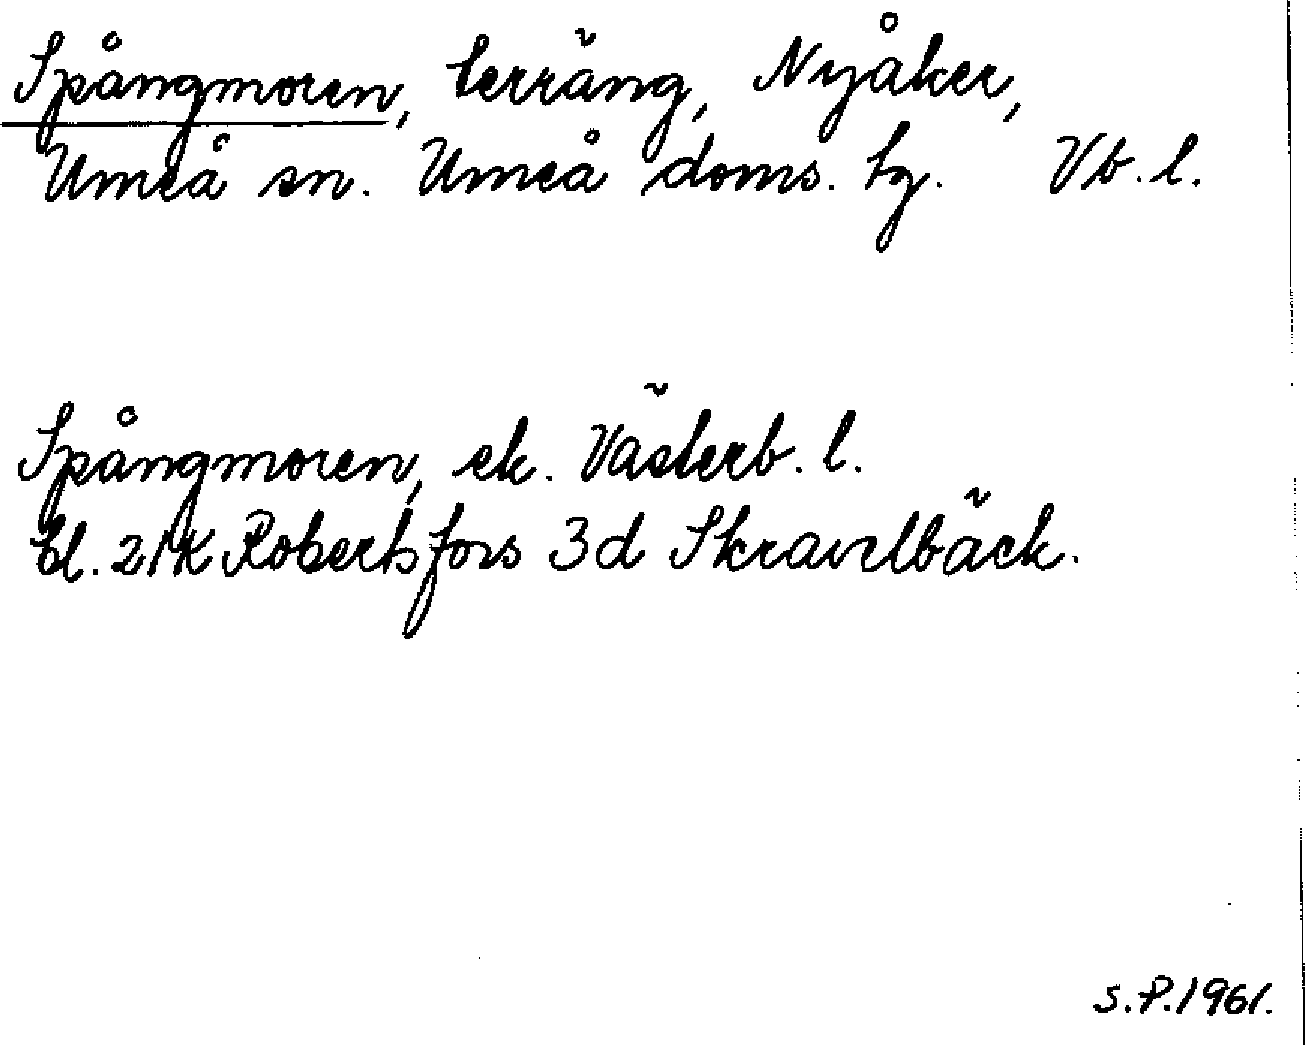 Spångmoren, terräng, Nyåker,
Umeå sn. Umeå doms. tg. Vb. l.
Spångmoren, ek. Västerb. l.
bl. 21K Robertsfors 3d Skravelbäck.
S.P.1961.